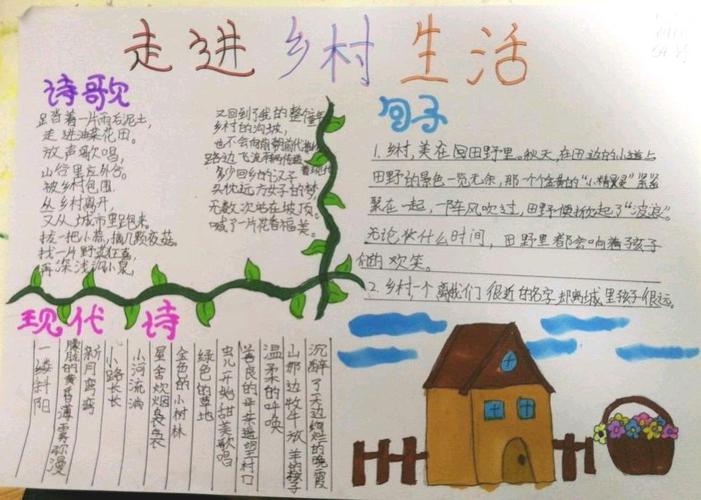 走进乡村生活
诗歌
足沓着一片雨后泥土,
走进油菜花田。
放声歌唱,
山谷里
被乡村包围
从乡村离开,
又从城市里跑来。
拔一把小蒜,摘几颗夜菇
找一片野
再深浅沟小
又回到了我的整个
乡村的沟坡,
也不会向
路边飞
多少回乡的汉子
头枕远方女子的梦
无数次站在坡顶。
喊了一片花香福美。
句子
1.乡村,美在田野里。秋天,在田边的小道上
田野的景色一览无余,那一个个金黄的“小精灵”紧紧
聚在一起,一阵风吹过,田野便掀起了“波浪”。
无论什么时间,田野里都会响着孩子
们的欢笑。
2.乡村一个离我们很近的名字却离城里孩子很远。
现代诗
沉醉了天边绚烂的晚霞
山那边牧牛放羊的孩子
温柔的呼唤
善良的母亲
虫儿开始甜美歌唱
绿色的草地
金色的小树林
星舍炊烟袅袅
小河流淌
小路长长
新月弯弯
朦胧的黄昏薄雾弥漫
一缕斜阳